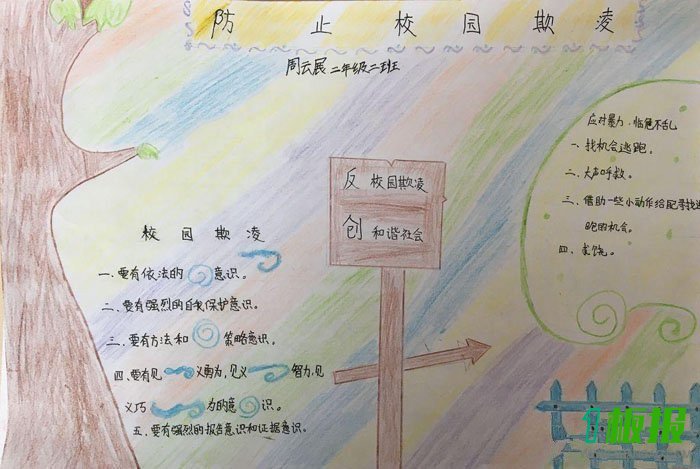 防止校园欺凌
周云展 二年级二班
校园欺凌
一、要有依法的意识。
二、要有强烈的自我保护意识。
三、要有方法和策略意识。
四、要有见义勇为,见义智力,见
义巧为的意识。
五、要有强烈的报告意识和证据意识。
反校园欺凌
创和谐社会
应对暴力,临危不乱
一、找机会逃跑。
二、大声呼救。
三、借助一些小动作给自己寻找逃
跑的机会。
四、求饶。
板报